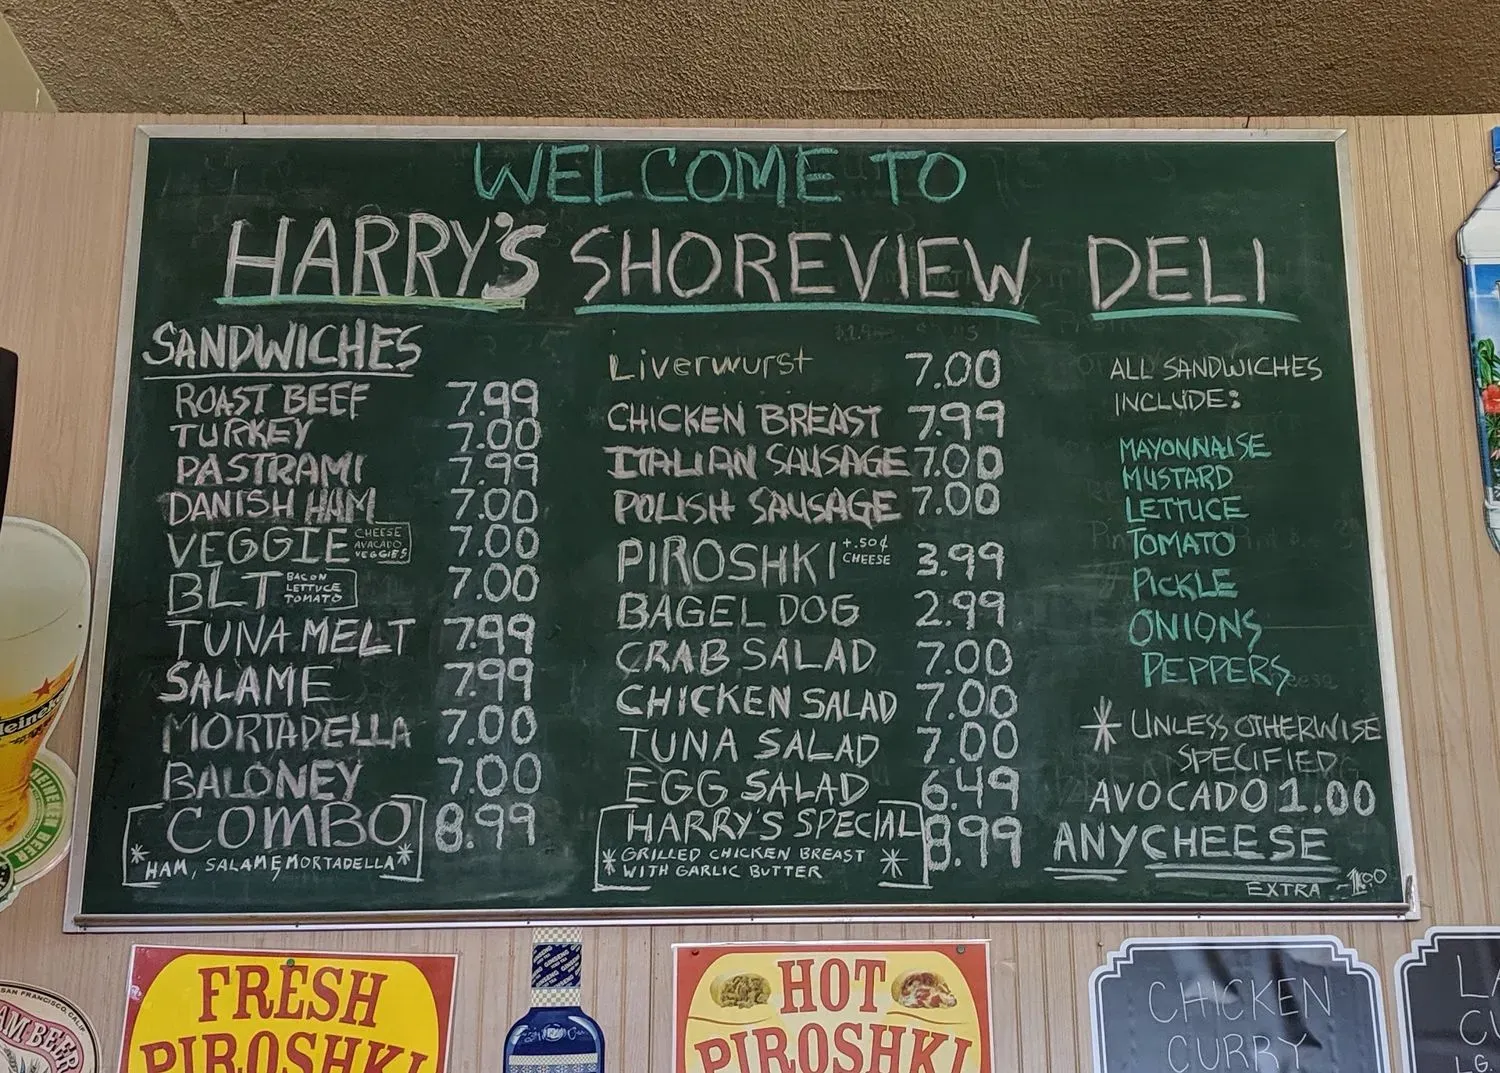 WELCOME TO
HARRY'S SHOREVIEW DELI
SANDWICHES
ROAST BEEF 7.99
TURKEY 7.00
PASTRAMI 7.99
DANISH HAM 7.00
VEGGIE CHEESE AVACADO VEGGIES 7.00
BLT BACON LETTUCE TOMATO 7.00
TUNA MELT 7.99
SALAME 7.99
MORTADELLA 7.00
BALONEY 7.00
COMBO 8.99
* HAM, SALAME, MORTADELLA *
Liverwurst 7.00
CHICKEN BREAST 7.99
ITALIAN SAUSAGE 7.00
POLISH SAUSAGE 7.00
PIROSHKI +.50¢ CHEESE 3.99
BAGEL DOG 2.99
CRAB SALAD 7.00
CHICKEN SALAD 7.00
TUNA SALAD 7.00
EGG SALAD 6.49
HARRY'S SPECIAL 8.99
* GRILLED CHICKEN BREAST *
WITH GARLIC BUTTER
ALL SANDWICHES
INCLUDE:
MAYONNAISE
MUSTARD
LETTUCE
TOMATO
PICKLE
ONIONS
PEPPERS
* UNLESS OTHERWISE
SPECIFIED
AVOCADO 1.00
ANY CHEESE
EXTRA - 1.00
FRESH
PIROSHKI
HOT
PIROSHKI
CHICKEN
CURRY
SAN FRANCISCO, CALIF
AM BEER